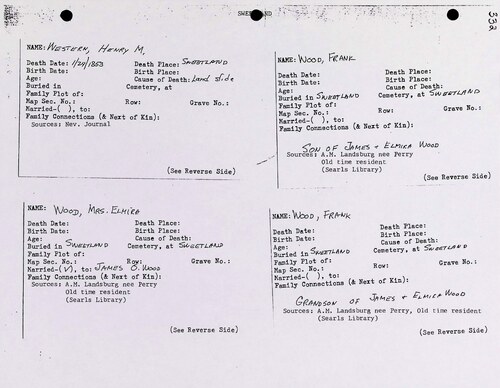 NAME: WESTERN, HENRY M.
Death Date: 1/24/1853 Death Place: SWEETLAND
Birth Date: Birth Place:
Age: Cause of Death: Land slide
Buried in Cemetery, at
Family Plot of:
Map Sec. No.: Row: Grave No.:
Married-( ), to:
Family Connections (& Next of Kin):
Sources: Nev. Journal
(See Reverse Side)
NAME: WOOD, FRANK
Death Date: Death Place:
Birth Date: Birth Place:
Age: Cause of Death:
Buried in SWEETLAND Cemetery, at SWEETLAND
Family Plot of:
Map Sec. No.: Row: Grave No.:
Married-( ), to:
Family Connections (& Next of Kin):
SON OF JAMES & ELMIRA WOOD
Sources: A.M. Landsburg nee Perry
Old time resident
(Searls Library)
(See Reverse Side)
NAME: WOOD, MRS. ELMIRA
Death Date: Death Place:
Birth Date: Birth Place:
Age: Cause of Death:
Buried in SWEETLAND Cemetery, at SWEETLAND
Family Plot of:
Map Sec. No.: Row: Grave No.:
Married-(√), to: JAMES O. WOOD
Family Connections (& Next of Kin):
Sources: A.M. Landsburg nee Perry
Old time resident
(Searls Library)
(See Reverse Side)
NAME: WOOD, FRANK
Death Date: Death Place:
Birth Date: Birth Place:
Age: Cause of Death:
Buried in SWEETLAND Cemetery, at SWEETLAND
Family Plot of:
Map Sec. No.: Row: Grave No.:
Married-( ), to:
Family Connections (& Next of Kin):
GRANDSON OF JAMES & ELMIRA WOOD
Sources: A.M. Landsburg nee Perry, Old time resident
(Searls Library)
(See Reverse Side)